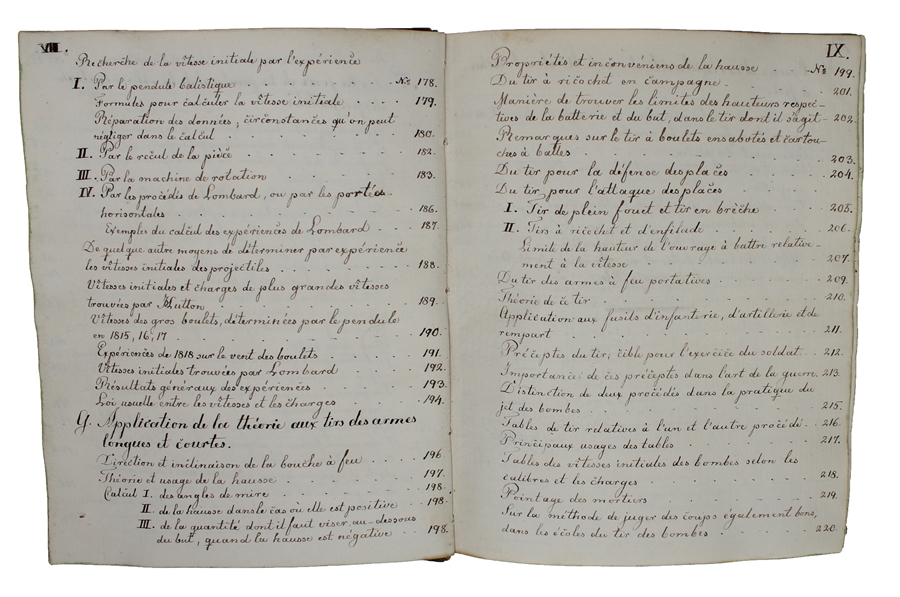 VIII.
Recherche de la vitesse initiale par l'expérience
I. Par le pendule balistique . . . . . . . . No 178.
Formules pour calculer la vitesse initiale . . . . 179.
Réparation des données, circonstances qu'on peut
négliger dans le calcul . . . . . . . . 180.
II. Par le recul de la pièce . . . . . . . . 182.
III. Par la machine de rotation . . . . . . . . 183.
IV. Par les procédés de Lombard, ou par les portées
horisontales . . . . . . . . 186.
Exemples du calcul des expériences de Lombard . . 187.
De quelque autre moyens de déterminer par expérience
les vitesses initiales des projectiles . . . . . . . . 188.
Vitesses initiales et charges de plus grandes vitesses
trouvées par Hutton . . . . . . . . 189.
Vitesses des gros boulets, déterminées par le pendule
en 1815, 16, 17 . . . . . . . . 190.
Expériences de 1818 sur le vent des boulets . . . . 191.
Vitesses initiales trouvées par Lombard . . . . 192.
Résultats généraux des expériences . . . . 193.
Loi usuelle entre les vitesses et les charges . . . . 194.
G. Application de la théorie aux tirs des armes
longues et courtes.
Direction et inclinaison de la bouche à feu . . . . 196.
Théorie et usage de la hausse . . . . 197.
Calcul I. des angles de mire . . . . 198.
II. de la hausse dans le cas où elle est positive . . 198.
III. de la quantité dont il faut viser au-dessous
du but, quand la hausse est négative . . 198.
IX.
Propriétés et inconvéniens de la hausse . . . . No 199.
Du tir à ricochet en campagne . . . . 201.
Manière de trouver les limites des hauteurs respec-
tives de la batterie et du but, dans le tir dont il s'agit - 202.
Remarques sur le tir à boulets ensabotés et cartou-
ches à balles . . . . . . . . 203.
Du tir pour la défense des places . . . . 204.
Du tir pour l'attaque des places . . . .
I. Tir de plein fouet et tir en brèche . . . . 205.
II. Tirs à ricochet et d'enfilade . . . . 206.
Limite de la hauteur de l'ouvrage à battre relative-
ment à la vitesse . . . . . . . . 207.
Du tir des armes à feu portatives . . . . 209.
Théorie de ce tir . . . . . . . . 210.
Application aux fusils d'infanterie, d'artillerie et de
rempart . . . . . . . . 211.
Préceptes du tir; cible pour l'exercice du soldat . . 212.
Importance de ces préceptes dans l'art de la guerre. 213.
Distinction de deux procédés dans la pratique du
jet des bombes . . . . . . . . 215.
Tables de tir relatives à l'un et l'autre procédé . . 216.
Principaux usages des tables . . . . 217.
Tables des vitesses initiales des bombes selon les
calibres et les charges . . . . . . . . 218.
Pointage des mortiers . . . . . . . . 219.
Sur la méthode de juger des coups également bons,
dans les écoles du tir des bombes . . . . 220.